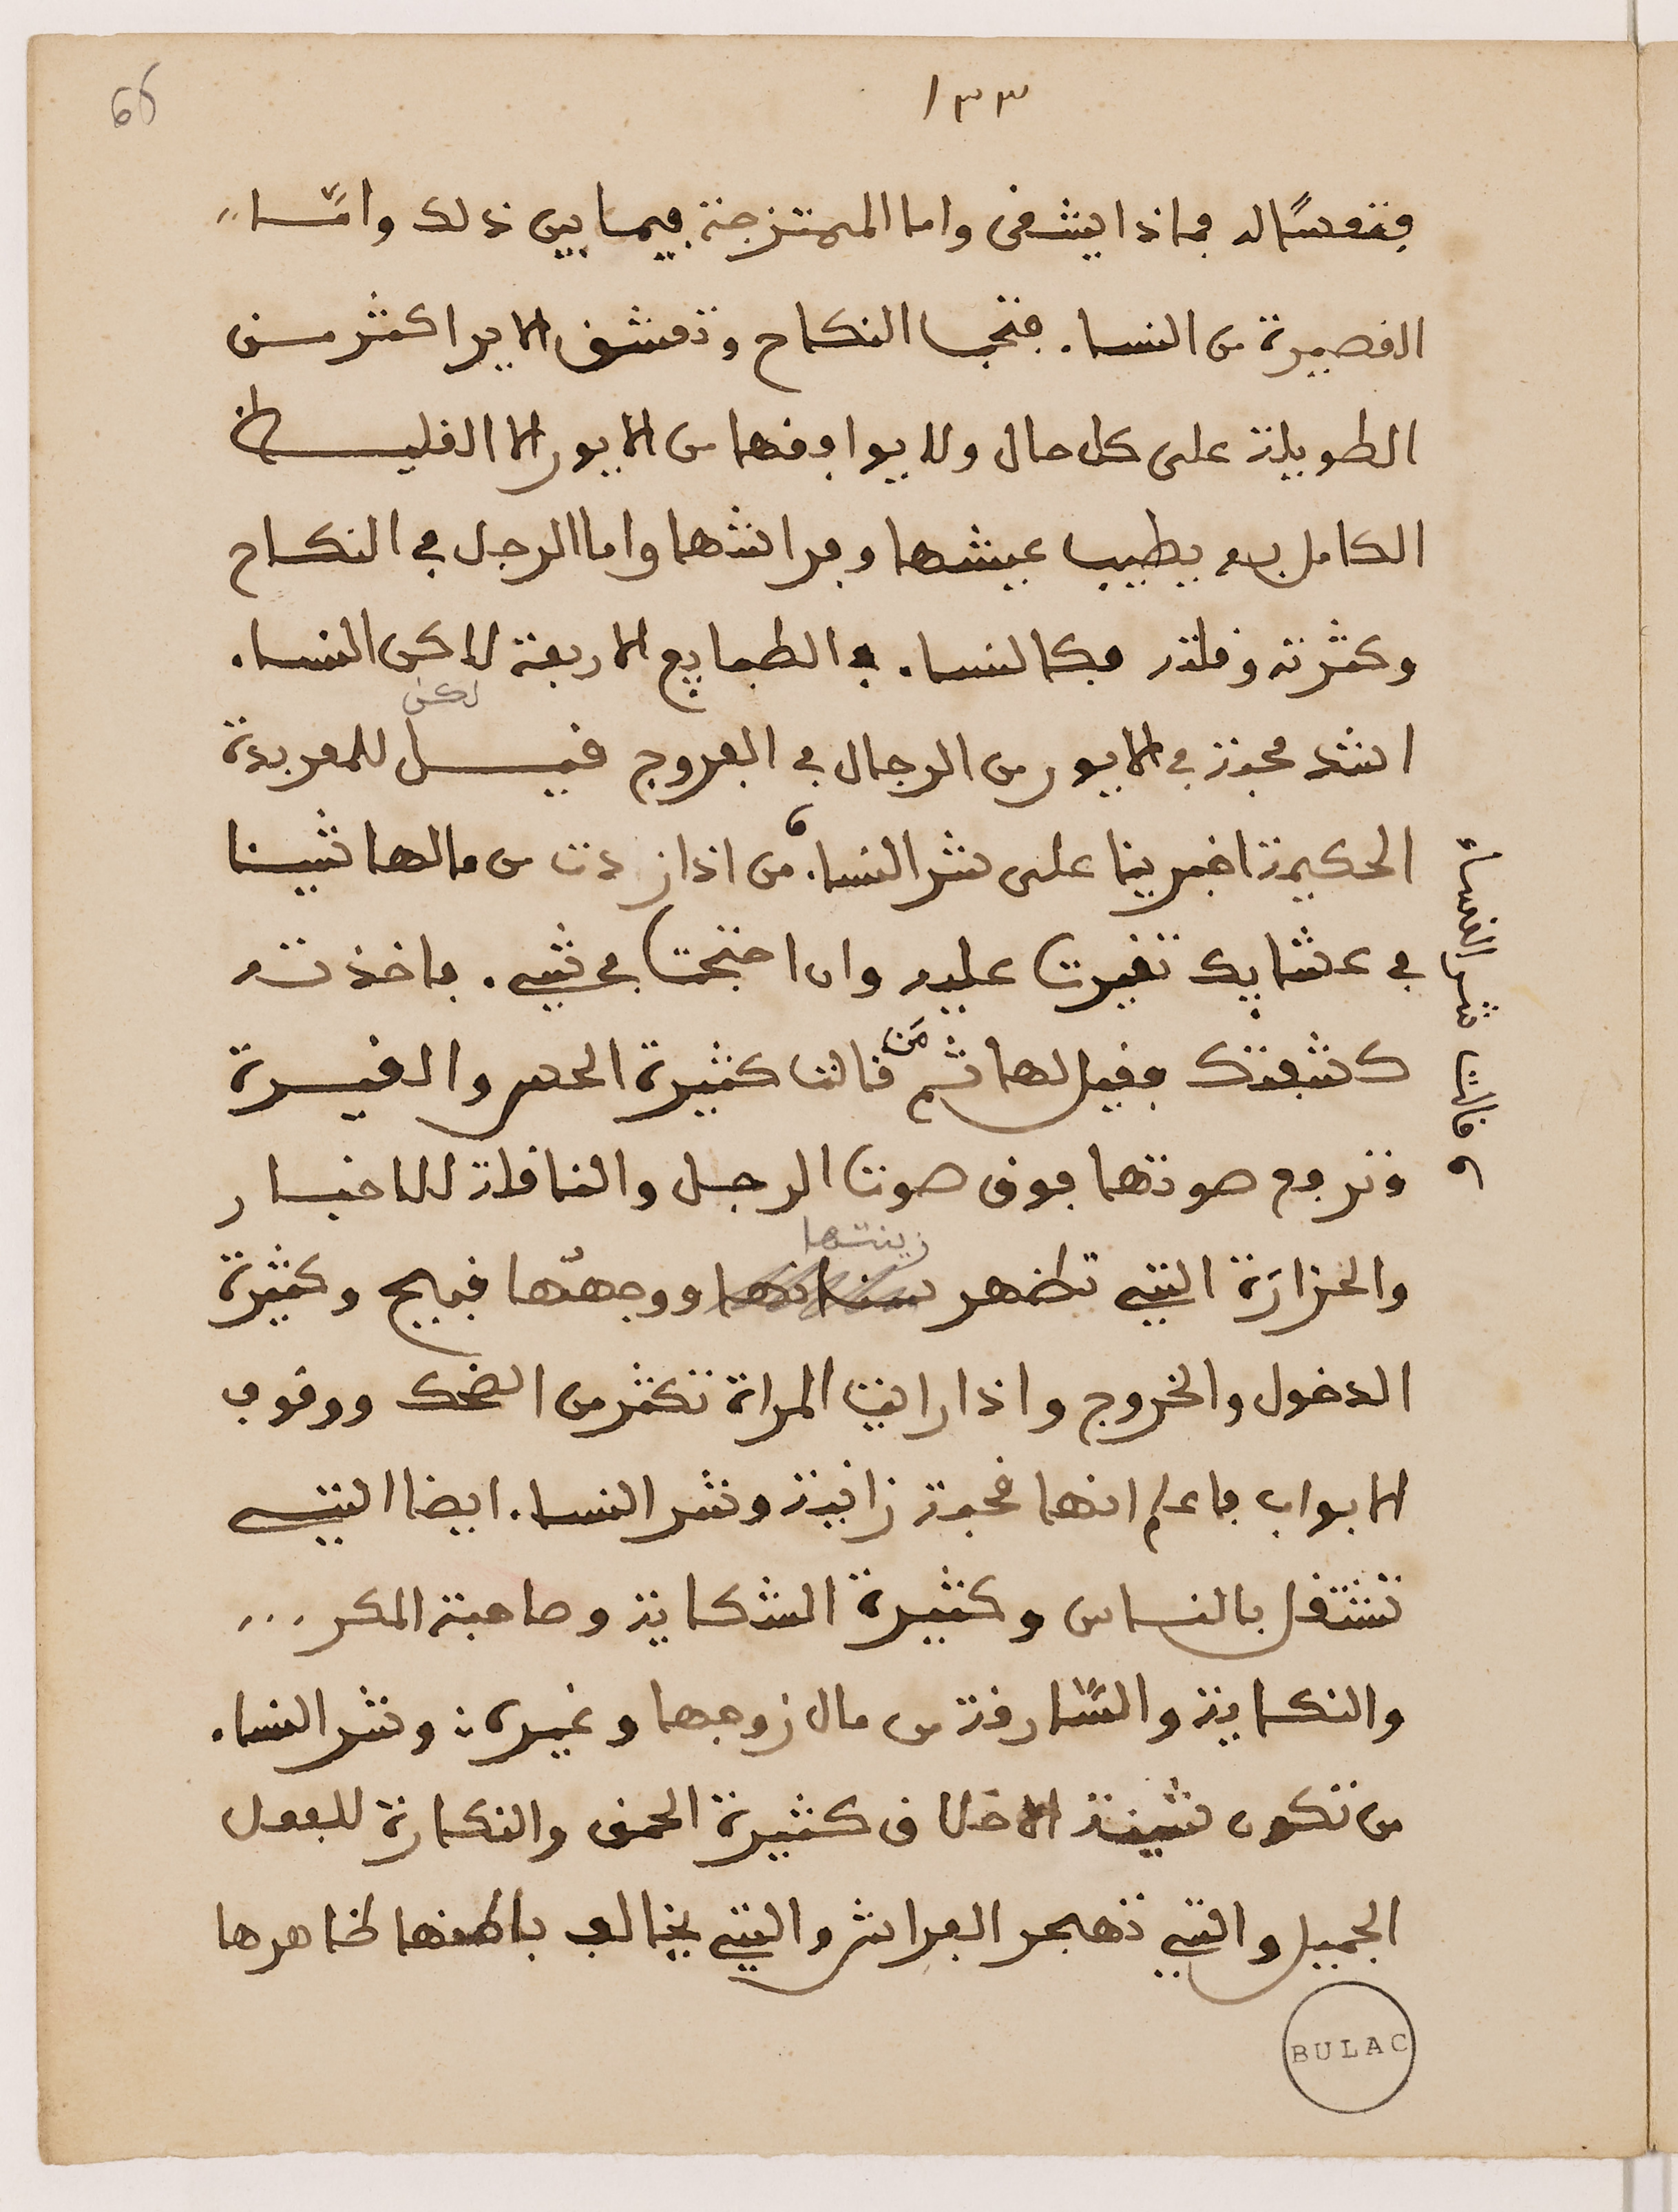 66
١٣٣
فتعسًا له فماذا يشفى واما الممتزجة فيما بين ذلك وامّا
القصيرة من النساء فتحب النكاح وتعشق الاير اكثر من
الطويلة على كل حال ولا يوافقها من الايور الا الغليظ
الكامل به يطيب عيشها وفراشها واما الرجل في النكاح
وكثرته وقلته فكالنساء في الطبايع الاربعة لاكن النساء
لكن
اشد محبة في الايور من الرجال في الفروج قيل للمعربدة
الحكيمة اخبرينا على شر النساء من اذا زدت من مالها شيئا
في عشايك تغيرت عليه وان احتجت في شيء فاخذته
كشفتك فقيل لها ثم من قالت كثيرة الحس والغيرة
وترفع صوتها فوق صوت الرجل والناقلة للاخبار
زينتها
والحزارَة التي تظهر ووجهُها قبيح وكثيرة
الدخول والخروج واذا رايت المراة تكثر من الضحك ووقوف
الابواب فاعلم انها قحبة زانية وشر النساء ايضا التي
تشتغل بالناس وكثيرة الشكاية وصاحبة المكر ...
والنكاية والسّارقة من مال زوجها وغيره وشر النساء
من تكون شينة الاخلاق كثيرة الحمق والنكارة للفعل
الجميل والتي تهجر الفراش والتي يخالف باطنها ظاهرها
قالت شر النساء
BULAC